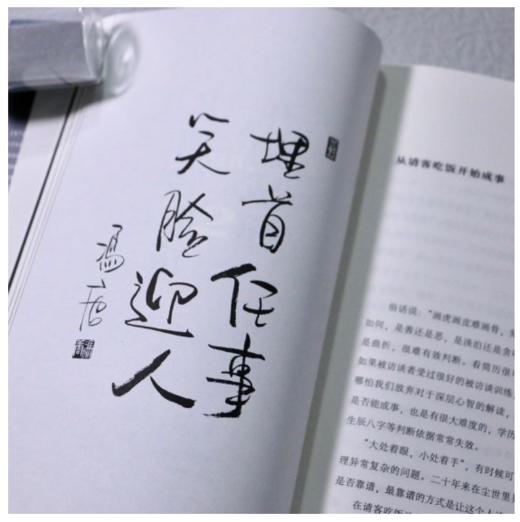 埋首任事
笑脸迎人
冯唐
从请客吃饭开始成事
俗话说：“画虎画皮难画骨，
如何，是善还是恶，是淡泊还是贪
是曲折，很难有效判断。看简历很
如果被访谈者受过很好的被访谈训练，
哪怕我们放弃对于深层心智的解读，
是否能成事，也是有很大难度的，学历
生辰八字等判断依据常常失效。
“大处着眼，小处着手”，有时候可
理异常复杂的问题。二十年来在尘世里
是否靠谱，最靠谱的方式是让这个人
在请客吃饭